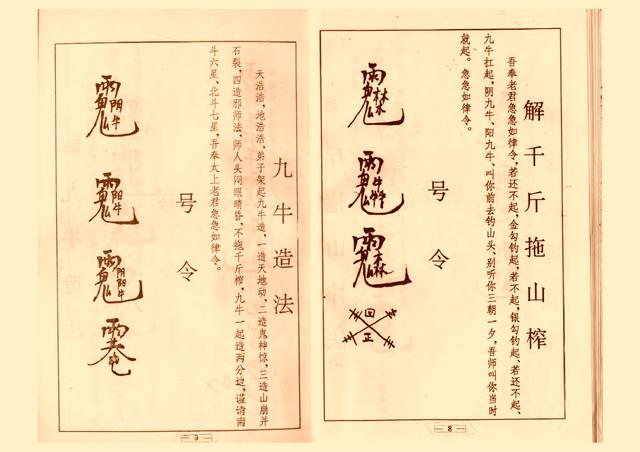 解千斤拖山榨
吾奉老君急急如律令，若还不起，金勾钓起，若不起，银勾钓起、若还不起、
九牛扛起，阴九牛、阳九牛、叫你前去钓山头、别听你三朝一夕，吾师叫你当时
就起。急急如律令。
号令
回
正
8
九牛造法
天浩浩，地浩浩，弟子架起九牛造，一造天地动，二造鬼神惊，三造山崩并
石裂，四造邪师法，师人头闷眼晴昏，不拖千斤榨，九牛一起造两分边，谨请南
斗六星、北斗七星，吾奉太上老君急急如律令。
号令
9